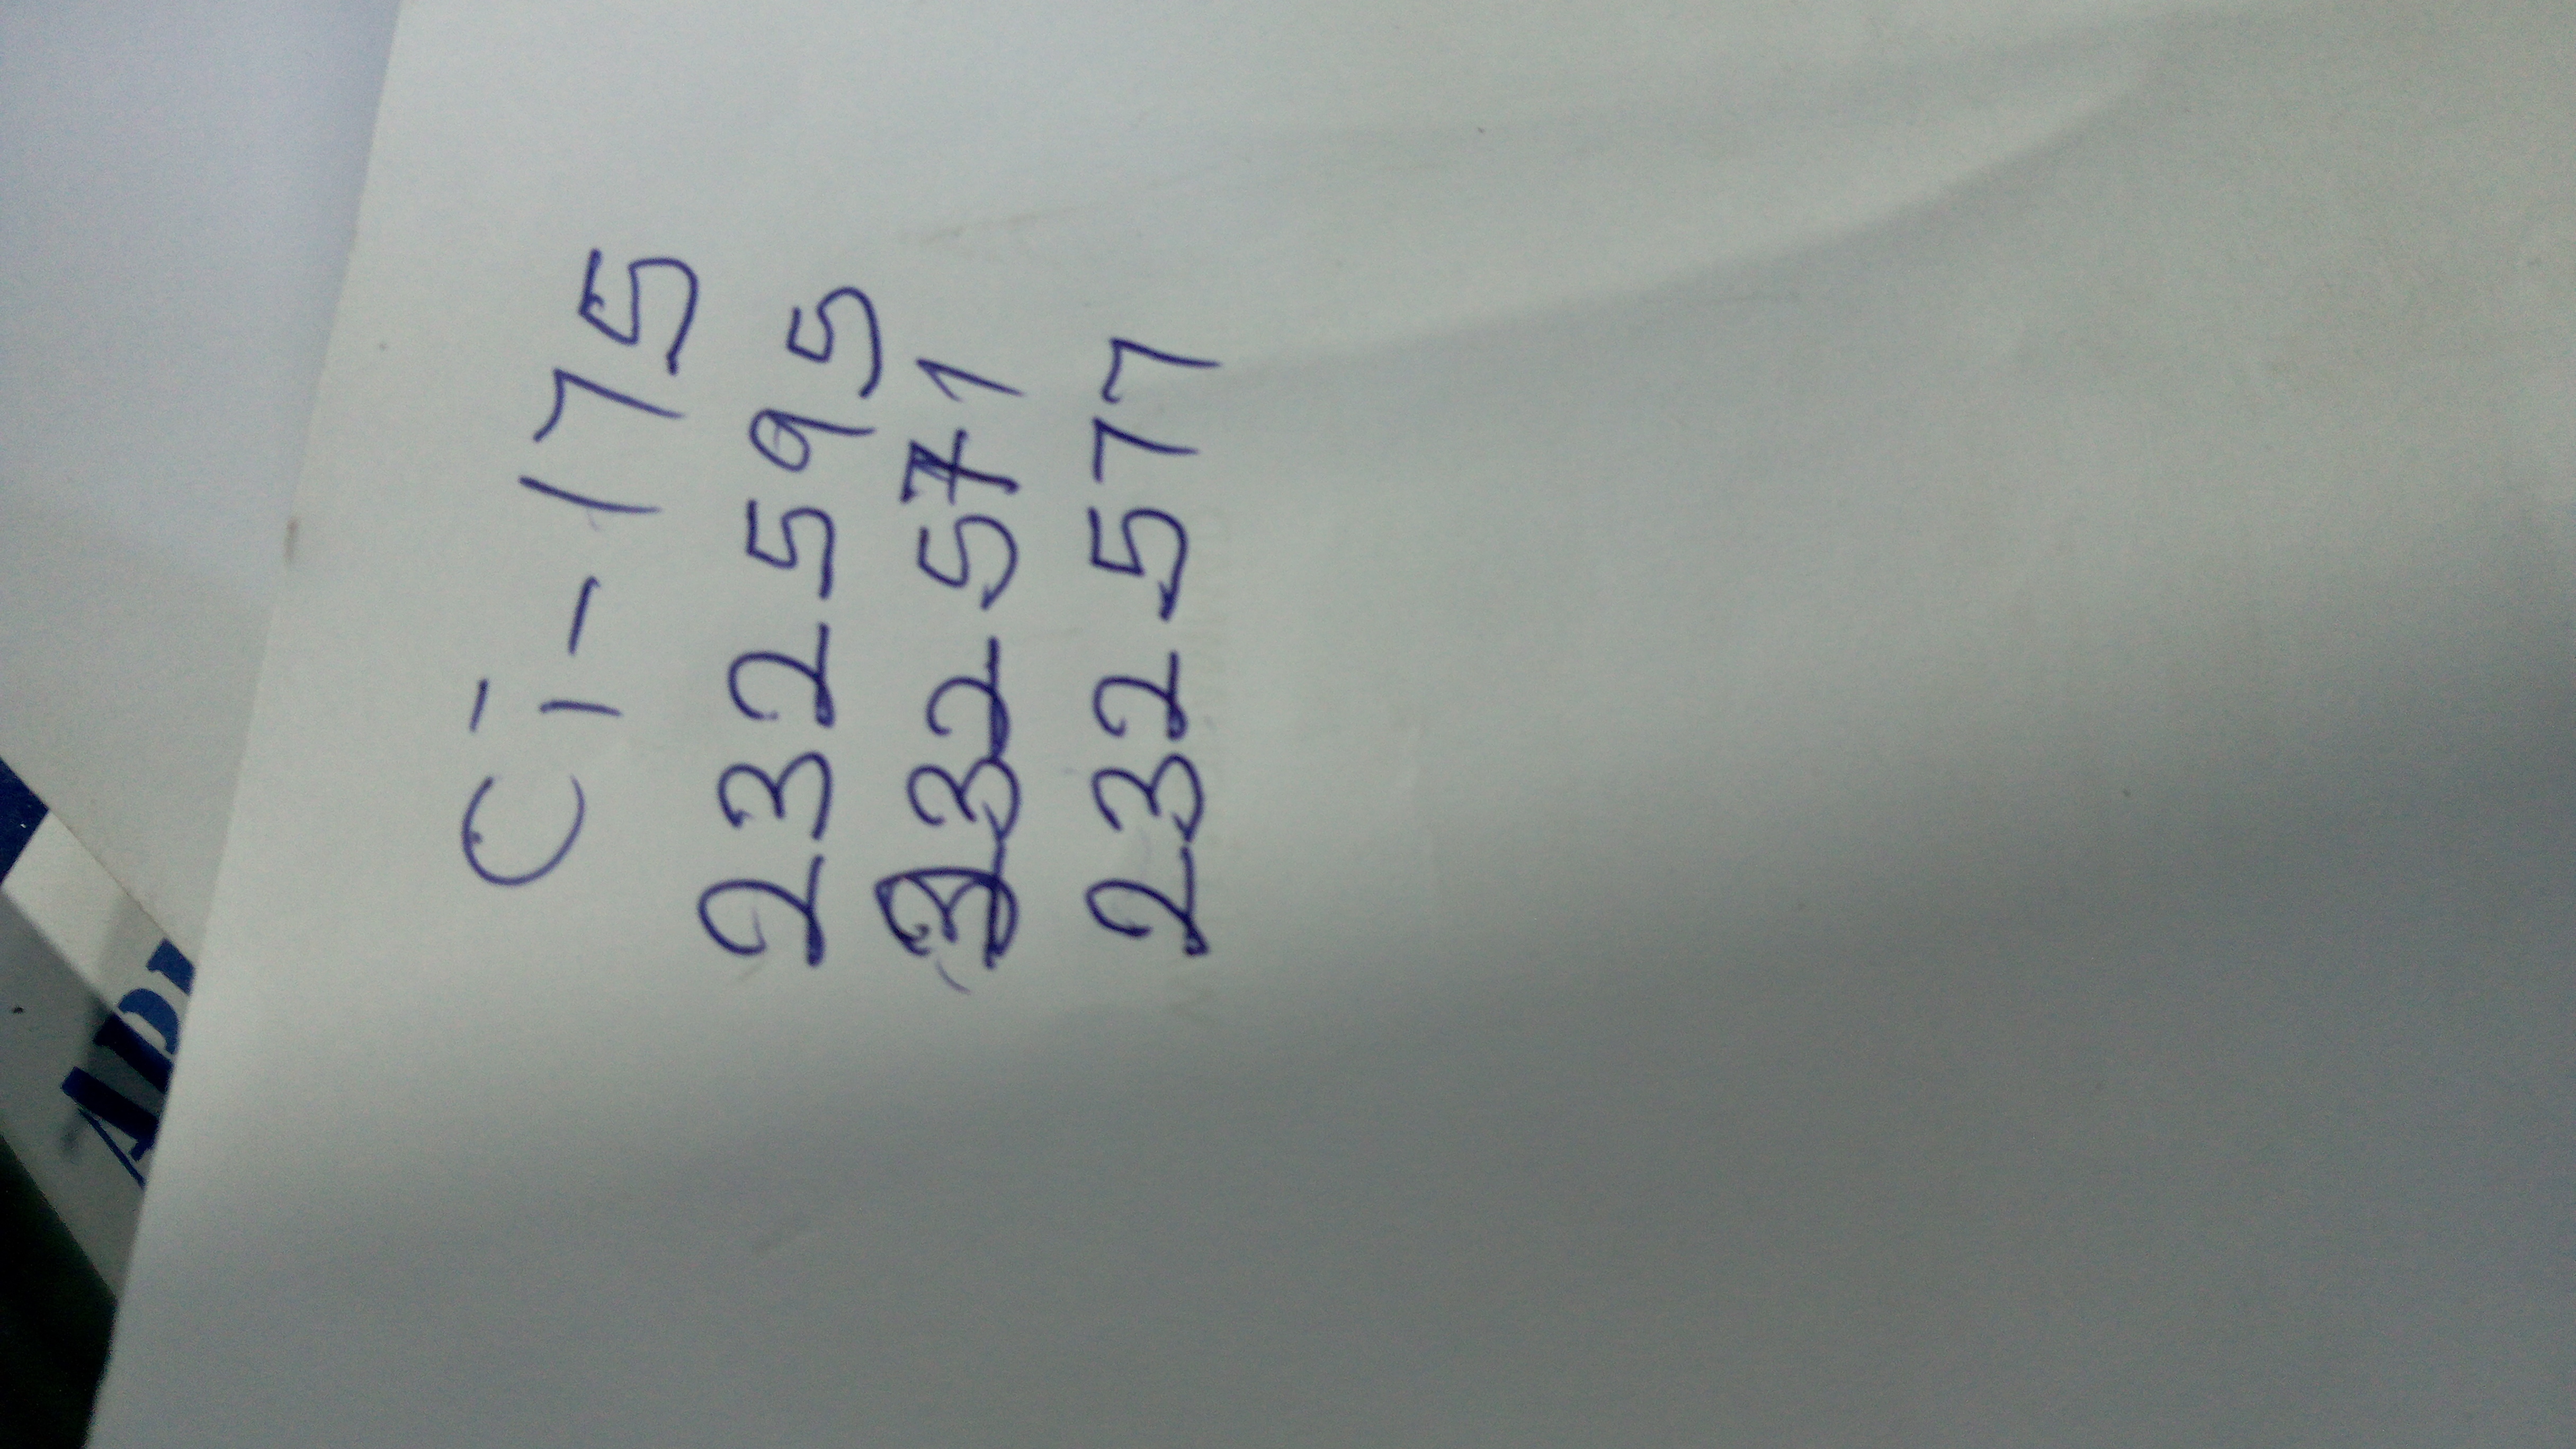 C1-175
232595
232571
232577